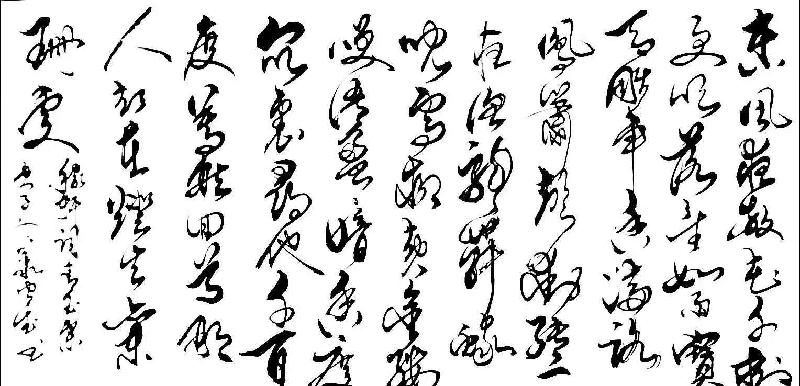 東風夜放花千樹
更吹落星如雨寶
馬雕車香滿路
鳳簫聲動
夜魚龍舞蛾
兒雪柳黃金縷
笑語盈盈暗香度
眾裏尋他千百
度驀然回首那
人卻在燈火闌
珊處
稼軒詞青玉案
書